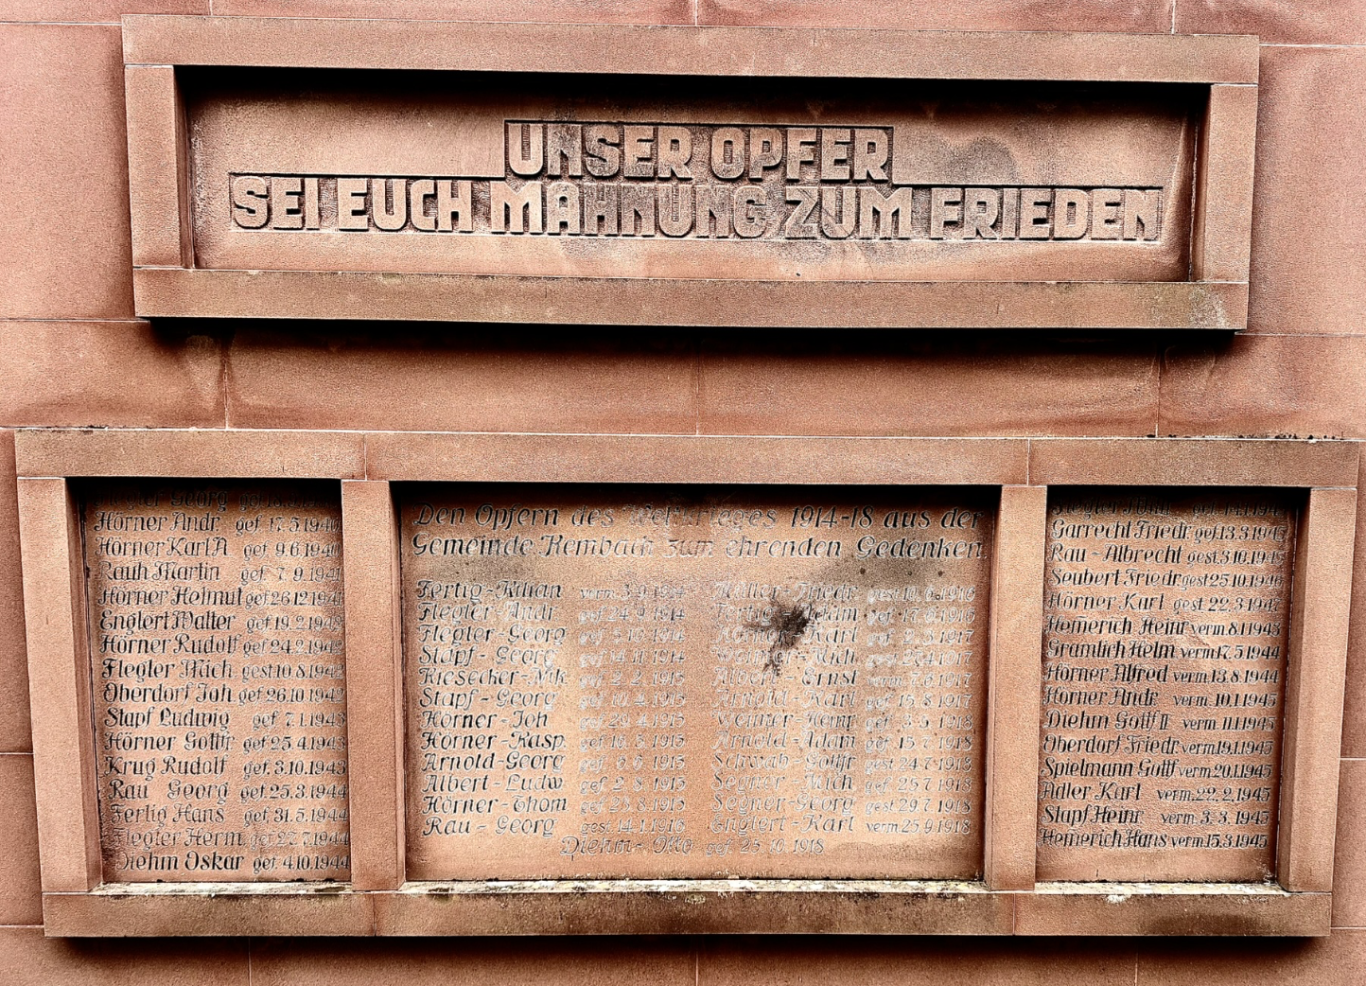 UNSER OPFER
SEI EUCH MAHNUNG ZUM FRIEDEN
Flegler Georg
Hörner Andr. gef. 17.5.1940
Hörner Karl A gef. 9.6.1940
Rauh Martin gef. 7.9.1941
Hörner Helmut gef. 26.12.1941
Englert Walter gef. 19.2.1942
Hörner Rudolf gef. 24.2.1942
Flegler Mich. gest. 10.8.1942
Oberdorf Joh. gef. 26.10.1942
Stapf Ludwig gef. 7.1.1943
Hörner Gottfr. gef. 25.4.1943
Krug Rudolf gef. 3.10.1943
Rau Georg gef. 25.3.1944
Fertig Hans gef. 31.5.1944
Flegler Herm. gef. 27.7.1944
Diehm Oskar gef. 4.10.1944
Den Opfern des Weltkrieges 1914-18 aus der
Gemeinde Rembach zum ehrenden Gedenken
Fertig - Kilian verm. 3.9.1914
Flegler - Andr. gef. 24.9.1914
Flegler - Georg gef. 5.10.1914
Stapf - Georg gef. 1914
Riesecker - Nik. gef. 2.2.1915
Stapf - Georg gef. 10.4.1915
Hörner - Joh. gef. 20.4.1915
Hörner - Kasp. gef. 10.5.1915
Arnold - Georg gef. 1915
Albert - Ludw. gef. 2.8.1915
Hörner - Thom. gef. 1915
Rau - Georg gest. 14.1.1918
Müller - Friedr. gest. 1916
Fertig - Adam gef. 1916
Karl gef. 1917
Mich. 1917
Albert - Ernst verm. 1917
Arnold - Karl gef. 16.8.1917
Wehner - Heinr. gef. 3.5.1918
Arnold - Adam gef. 15.7.1918
Schwab - Gottfr. gest. 24.7.1918
Segner - Mich. gef. 25.7.1918
Segner - Georg gest. 29.7.1918
Englert - Karl verm. 25.9.1918
Diehm - Otto gef. 25.10.1918
Garrecht Friedr. gef. 13.3.1945
Rau - Albrecht gest. 3.10.1945
Seubert Friedr. gest. 25.10.1946
Hörner Karl gest. 22.3.1947
Hemerich Heinr. verm. 8.1.1943
Gramlich Helm. verm. 17.5.1944
Hörner Alfred verm. 13.8.1944
Hörner Andr. verm. 10.1.1945
Diehm Gottf. II verm. 11.1.1945
Oberdorf Friedr. verm. 19.1.1945
Spielmann Gottf. verm. 20.1.1945
Adler Karl verm. 22.2.1945
Stapf Heinr. verm. 3.3.1945
Hemerich Hans verm. 15.3.1945